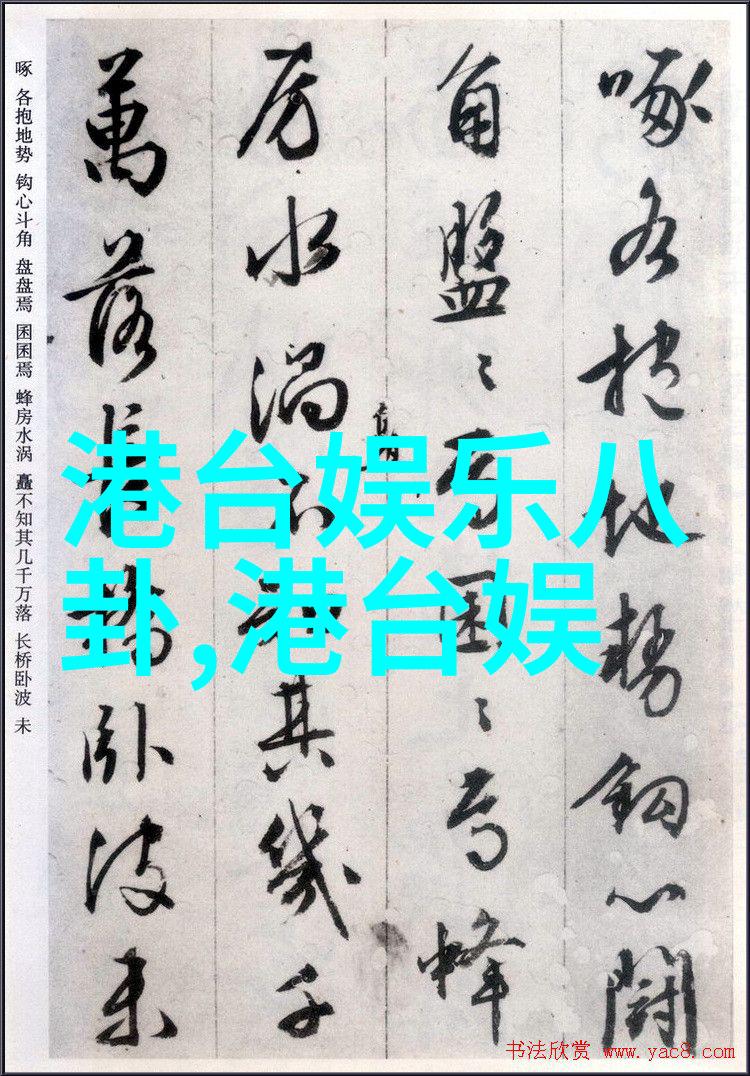 啄各抱地勢鈎心鬪
角盤〻焉囷〻焉蜂
房水渦不知其幾千
矗
萬落長橋卧波未
啄 各抱地势 钩心斗角 盘盘焉 囷囷焉 蜂房水涡 矗不知其几千万落 长桥卧波 未
港台娱乐八
卦,港台娱
书法欣赏 www.yac8.com